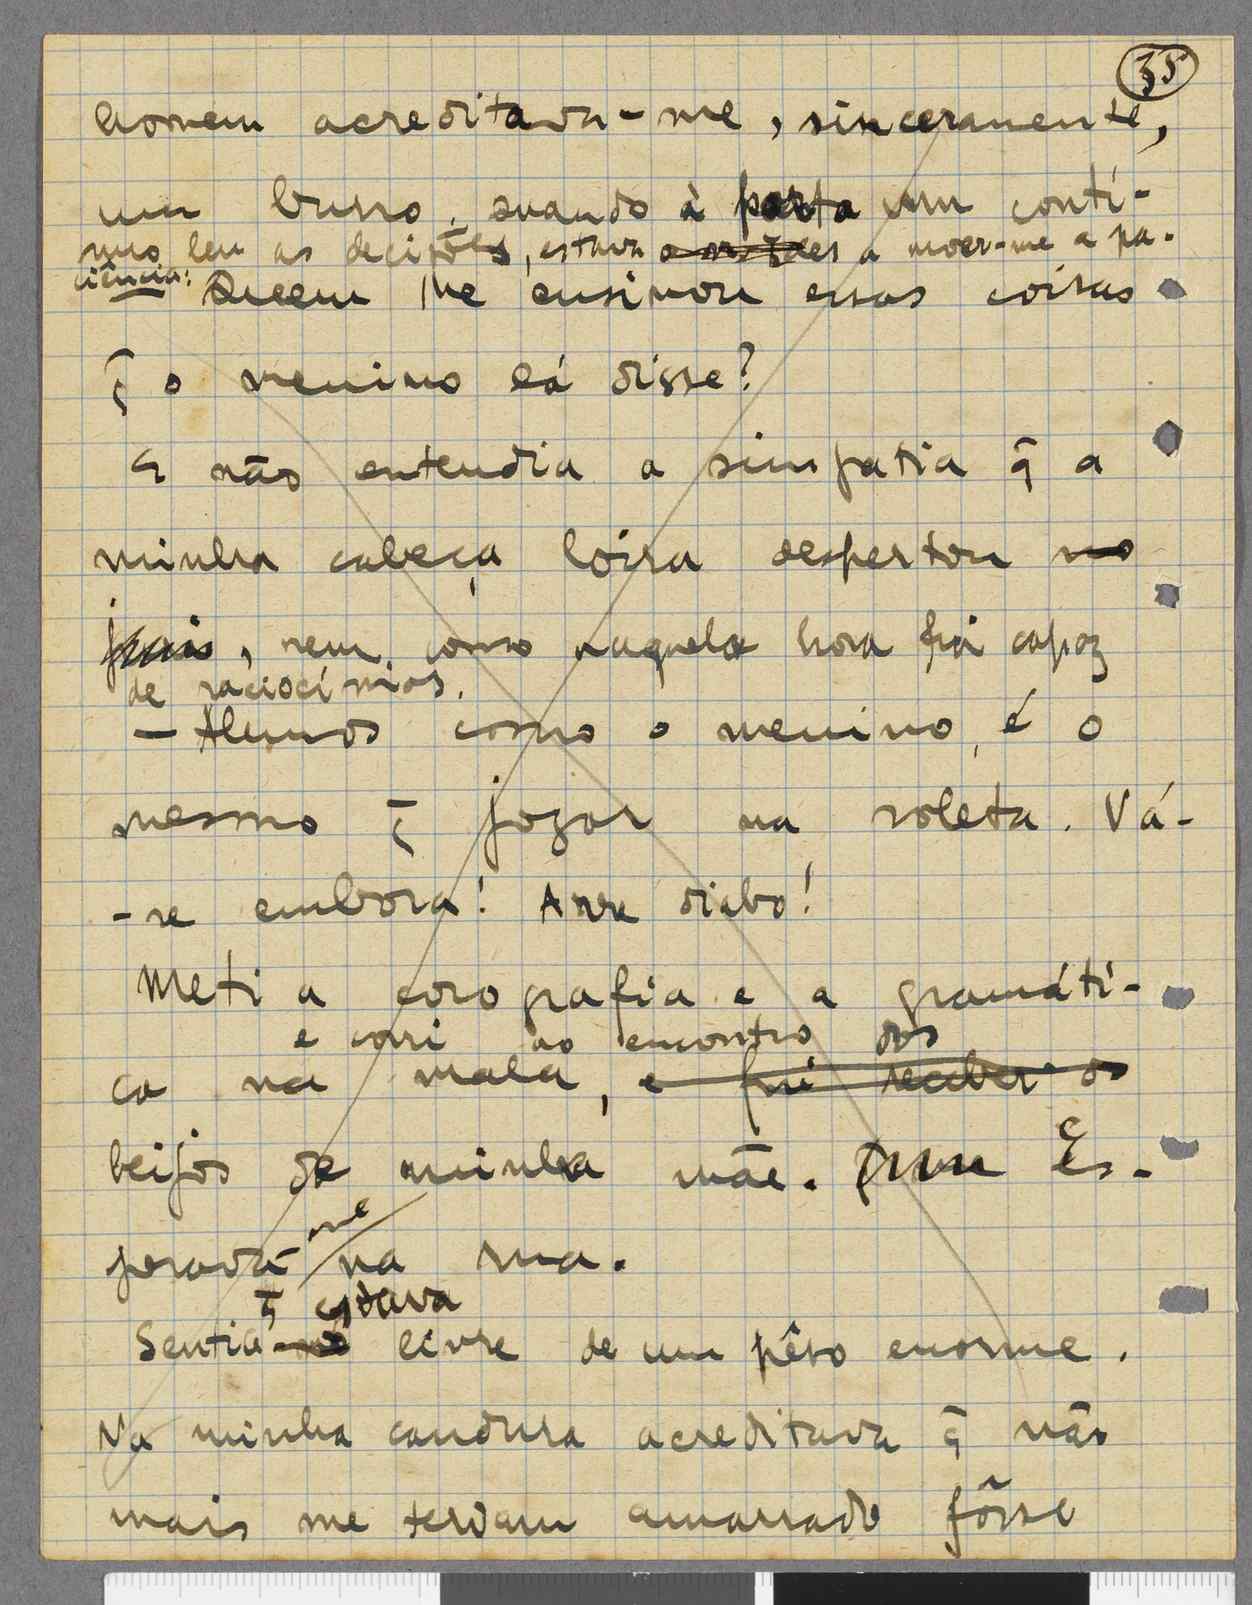 35
homem acreditava-me, sinceramente,
um burro. Quando à porta um contí-
nuo leu as decisões, estava a moer-me a pa-
ciência:
Quem lhe ensinou essas coisas
q̃ o menino lá disse?
E não entendia a simpatia q̃ a
minha cabeça loira despertou no
juis, nem como naquela hora fui capaz
de raciocínios.
— Alunos como o menino, é o
mesmo q̃ jogar na roleta. Vá-
-se embora! Arre diabo!
Meti a corografia e a gramáti-
e corri ao encontro dos
ca na mala, e fui receber os
beijos de minha mãe. Es-
perava-me na rua.
q̃ estava
Sentia-me livre de um pêso enorme.
Na minha candura acreditava q̃ não
mais me teriam amarrado fôsse